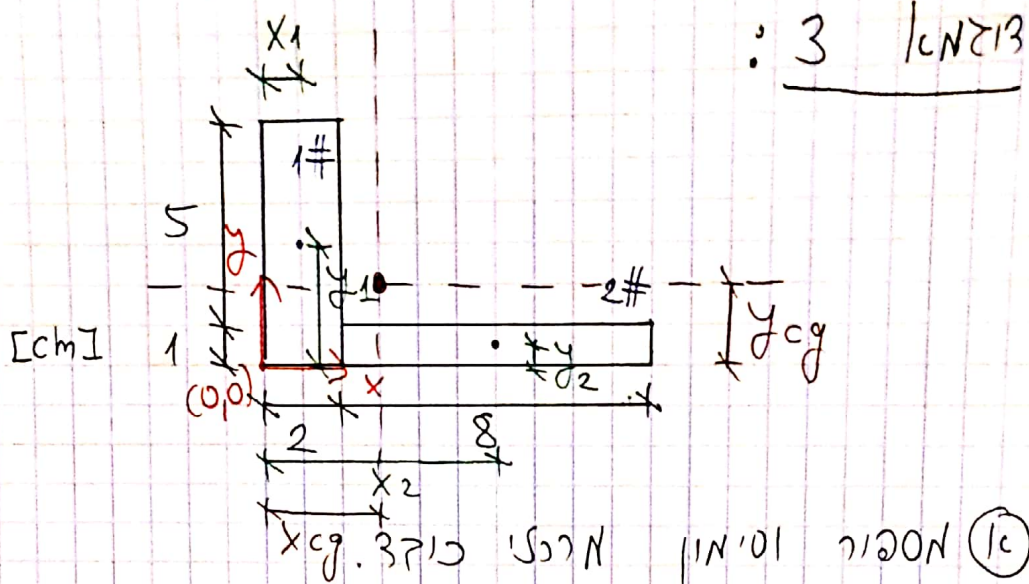 דוגמא 3 :
x1
1#
5
y
y1
2#
ycg
[cm]
1
y2
(0,0)
x
2
8
x2
xcg
א מספור וסימון מרכזי כובד.